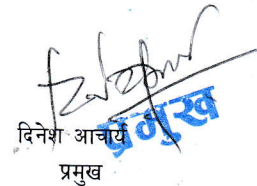 प्रमुख
दिनेश आचार्य
प्रमुख